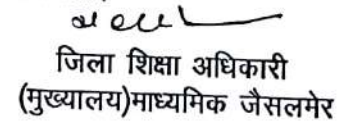 जिला शिक्षा अधिकारी
(मुख्यालय)माध्यमिक जैसलमेर